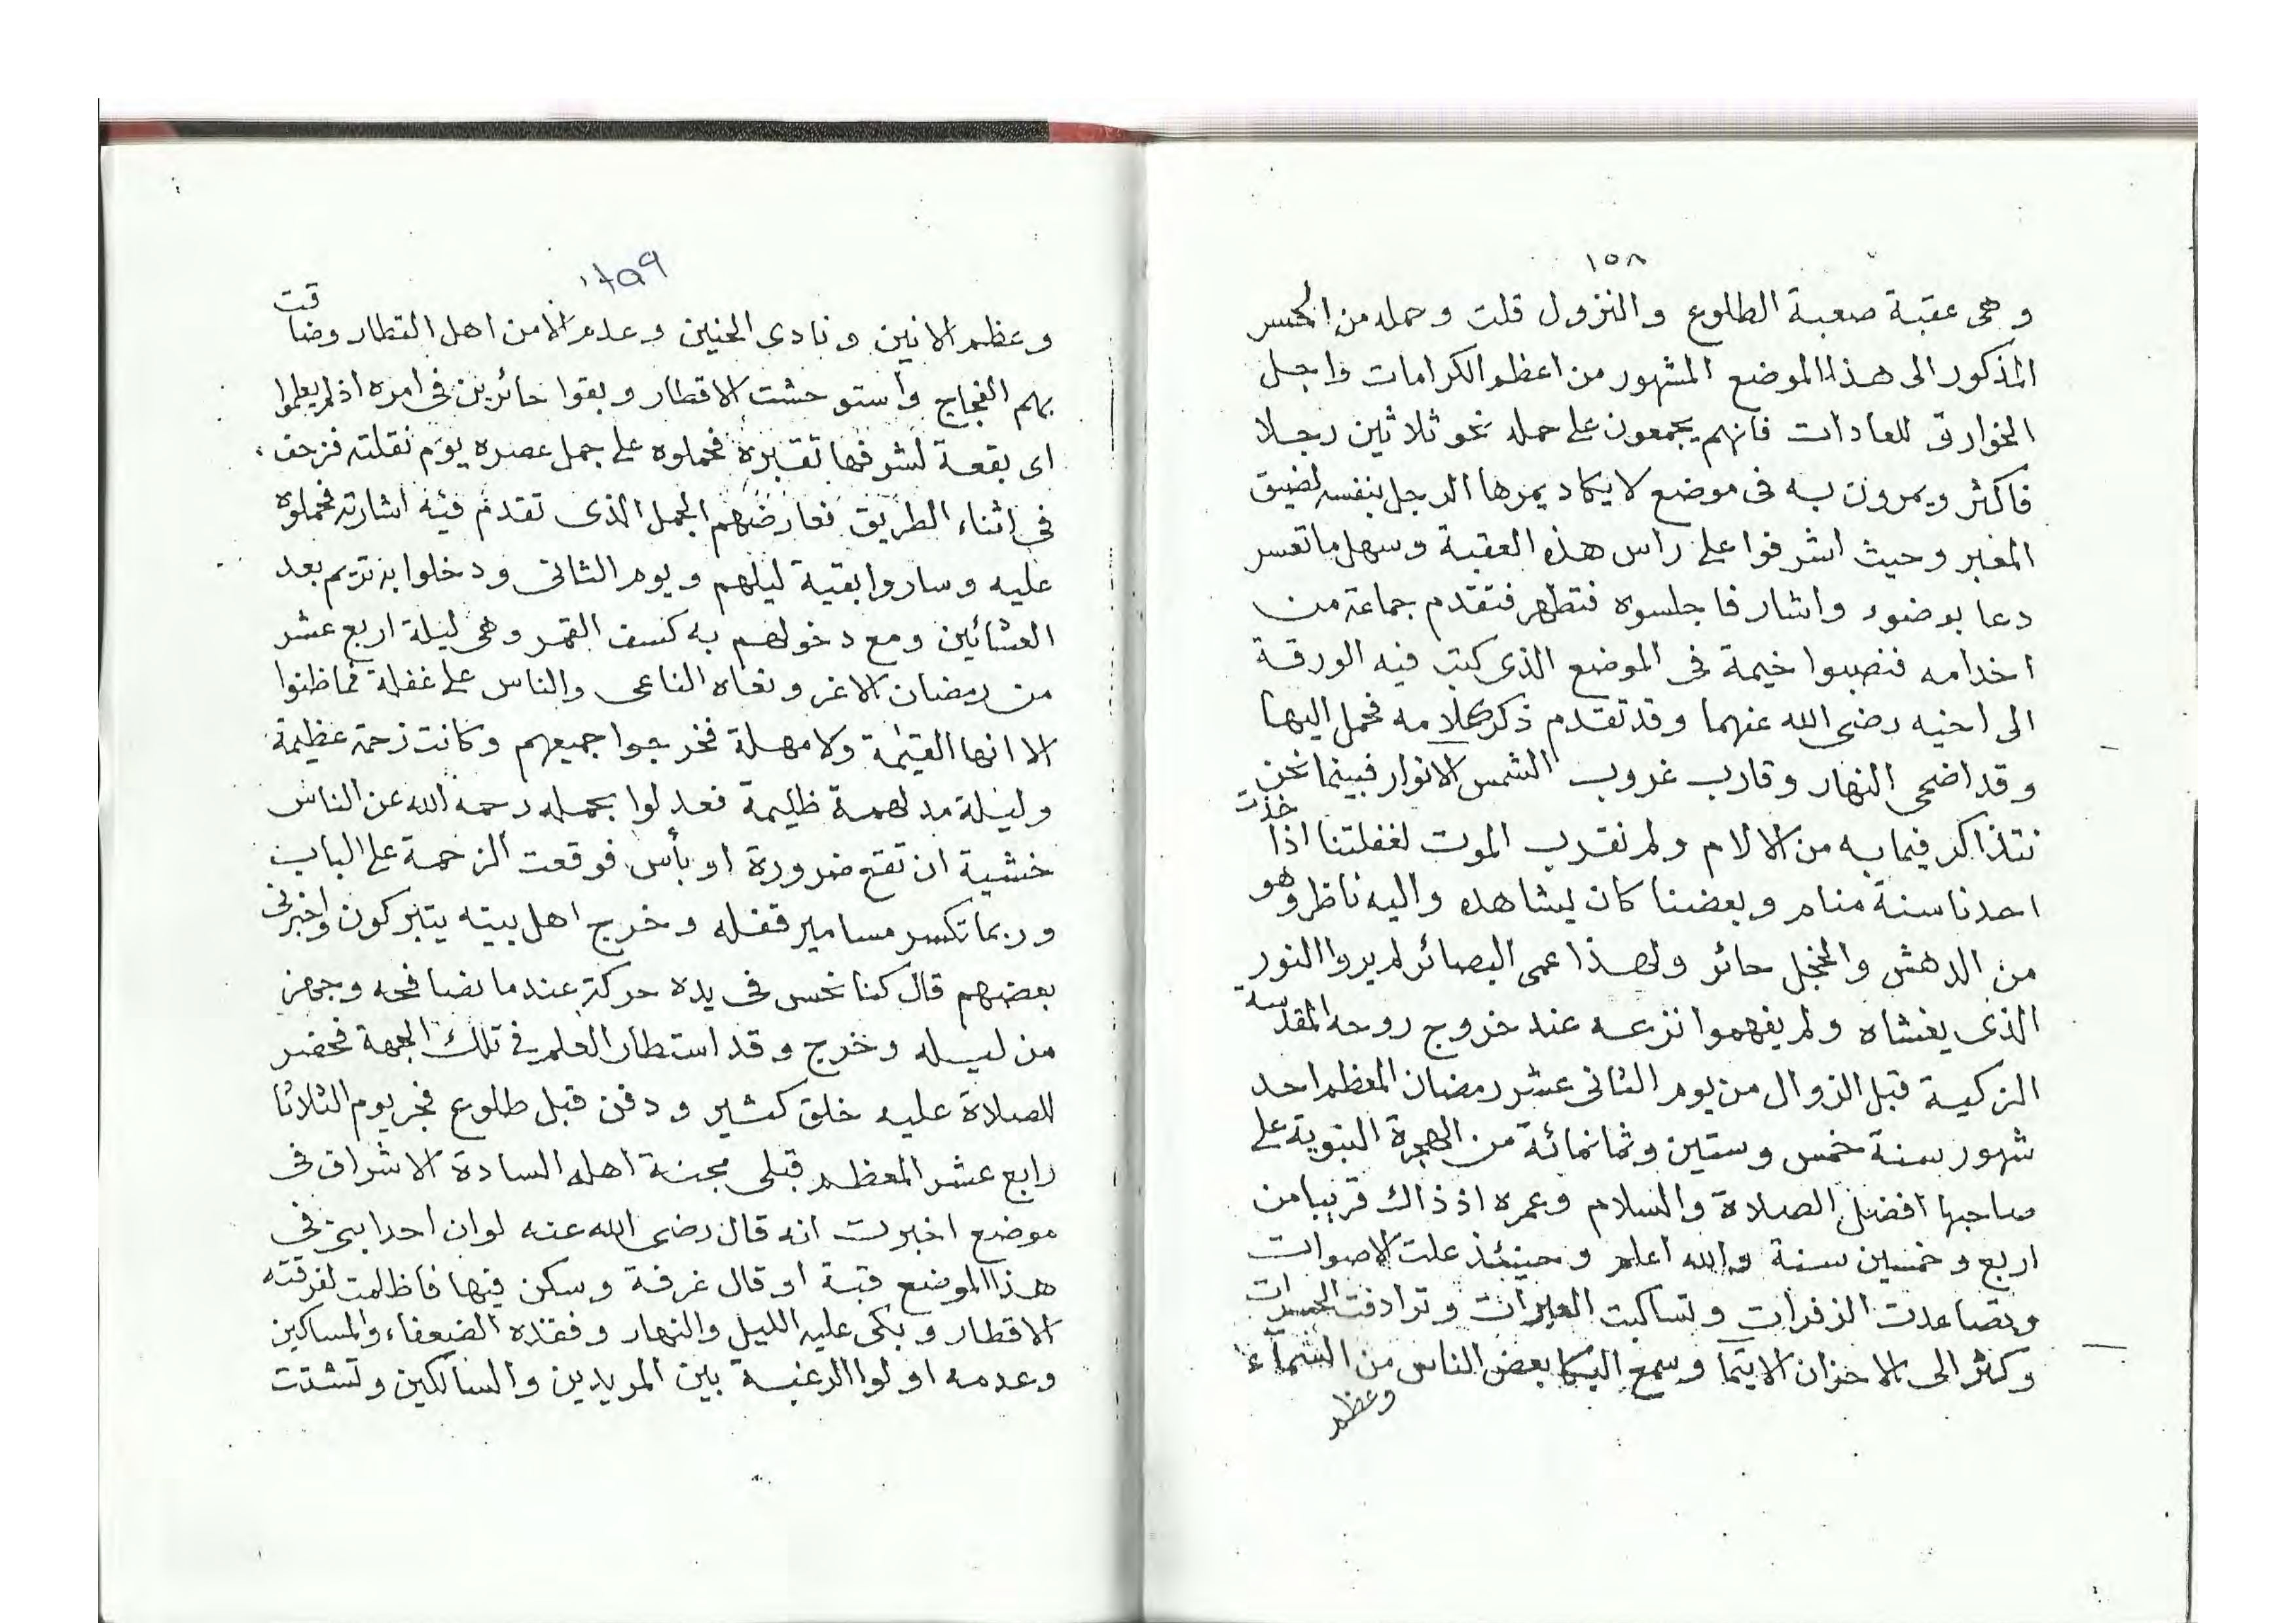 ١٥٨
وهى عقبة صعبة الطلوع والنزول قلت وحمله من الجسر
المذكور الى هذا الموضع المشهور من اعظم الكرامات واجل
الخوارق للعادات فانهم يجمعون على حمله نحو ثلاثين رجلا
فاكثر ويمرون به فى موضع لا يكاد يمرها الرجل بنفسه لضيق
المعبر وحيث اشرفوا على راس هذه العقبة وسهل ما تعسر
دعا بوضوء واشار فاجلسوه فتطهر فتقدم جماعة من
اخدامه فنصبوا خيمة فى الموضع الذى كتب فيه الورقة
الى اخيه رضى الله عنهما وقد تقدم ذكر كلامه فحمل اليها
وقد اضحى النهار وقارب غروب الشمس الانوار فبينما نحن
نتذاكر فيما به من الالام ولم نقرب الموت لغفلتنا اذا خذت
احدنا سنة منام وبعضنا كان يشاهده واليه ناظر وهو
من الدهش والخجل حائر ولهذا عمى البصائر لم يروا النور
الذى يغشاه ولم يفهموا نزعه عند خروج روحه المقدسة
الزكية قبل الزوال من يوم الثانى عشر رمضان المعظم احد
شهور سنة خمس وستين وثمانمائة من الهجرة النبوية على
صاحبها افضل الصلاة والسلام وعمره اذ ذاك قريبا من
اربع وخمسين سنة والله اعلم وحينئذ علت الاصوات
وتصاعدت الزفرات وتساكبت العبرات وترادفت الحسرات
وكثر الى الاحزان الايتما وسمع البكا بعض الناس من السماء
وعظم
١٥٩
وعظم الانين ونادى الحنين وعدم الامن اهل القطار وضاقت
بهم الفجاج واستوحشت الاقطار وبقوا حائرين فى امره اذ لم يعلموا
اى بقعة لشرفها تقبره فحملوه على جمل عصره يوم نقلته فزحف
فى اثناء الطريق فعارضهم الجمل الذى تقدم فيه اشارته فحملوه
عليه وساروا بقية ليلهم ويوم الثانى ودخلوا به تريم بعد
العشائين ومع دخولهم به كسف القمر وهى ليلة اربع عشر
من رمضان الاغر ونعاه الناعى والناس على غفلة فما ظنوا
الا انها القيمة ولا مهلة فخرجوا جميعهم وكانت زحمة عظيمة
وليلة مدلهمة ظليمة فعدلوا بحمله رحمه الله عن الناس
خشية ان تقع ضرورة او بأس فوقعت الزحمة على الباب
وربما تكسر مسامير قفله وخرج اهل بيته يتبركون واخبرنى
بعضهم قال كنا نحس فى يده حركة عندما نصافحه وجهز
من ليله وخرج وقد استطار العلم فى تلك الجهة فحضر
للصلاة عليه خلق كثير ودفن قبل طلوع فجر يوم الثلاثا
رابع عشر المعظم قبلى مجنة اهله السادة الاشراف فى
موضع اخبرت انه قال رضى الله عنه لو ان احدا بنى فى
هذا الموضع قبة او قال غرفة وسكن فيها فاظلمت لفرقته
الاقطار وبكى عليه الليل والنهار وفقده الضعفاء والمساكين
وعدمه اولوا الرغبة بين المريدين والسالكين وتشتت